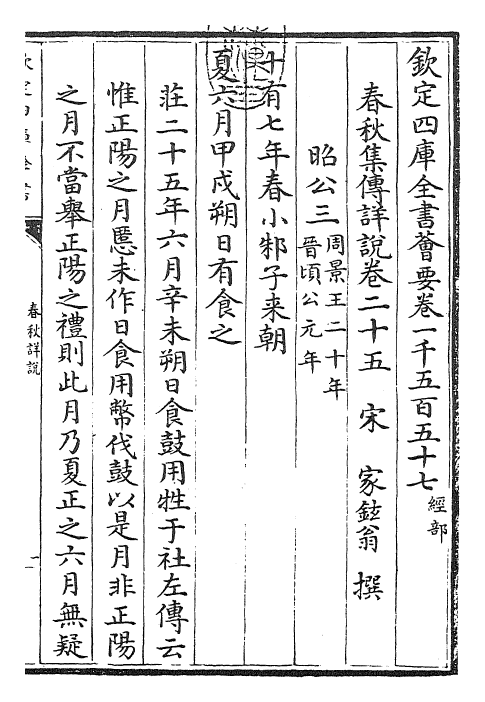 欽定四庫全書薈要卷一千五百五十七 經部
春秋集傳詳說卷二十五 宋 家鉉翁 撰
昭公三 周景王二十年
晉頃公元年
十有七年春小邾子来朝
夏六月甲戌朔日有食之
莊二十五年六月辛未朔日食鼓用牲于社左傳云
惟正陽之月慝未作日食用幣伐鼓以是月非正陽
之月不當舉正陽之禮則此月乃夏正之六月無疑
春秋詳說
一